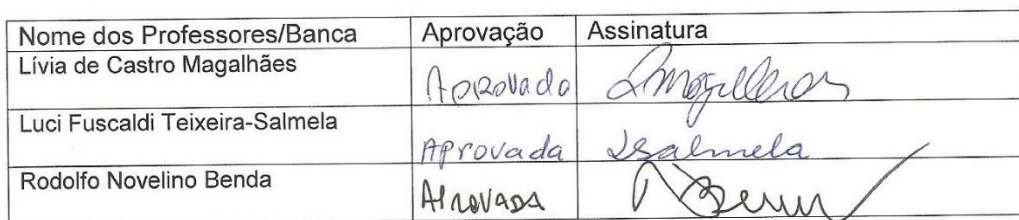 Nome dos Professores/Banca Aprovação Assinatura
Lívia de Castro Magalhães Aprovado LMagalhães
Luci Fuscaldi Teixeira-Salmela Aprovada LSalmela
Rodolfo Novelino Benda Aprovada